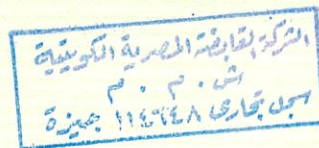 الشركة القابضة المصرية الكويتية
ش . م . م
سجل تجارى ١١٤٦٦٤٨ جيزة